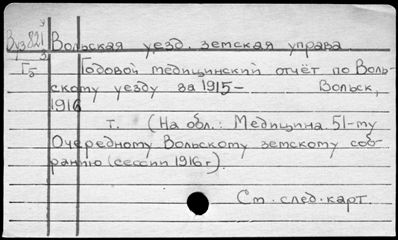 Вуз821
3
Вольская уезд. земская управа.
Г5
Годовой медицинский отчёт по Воль-
скому уезду за 1915- Вольск,
1916
т. (На обл.: Медицина. 51-му
Очередному Вольскому земскому соб-
ранию (сессии 1916 г).
См. след. карт.